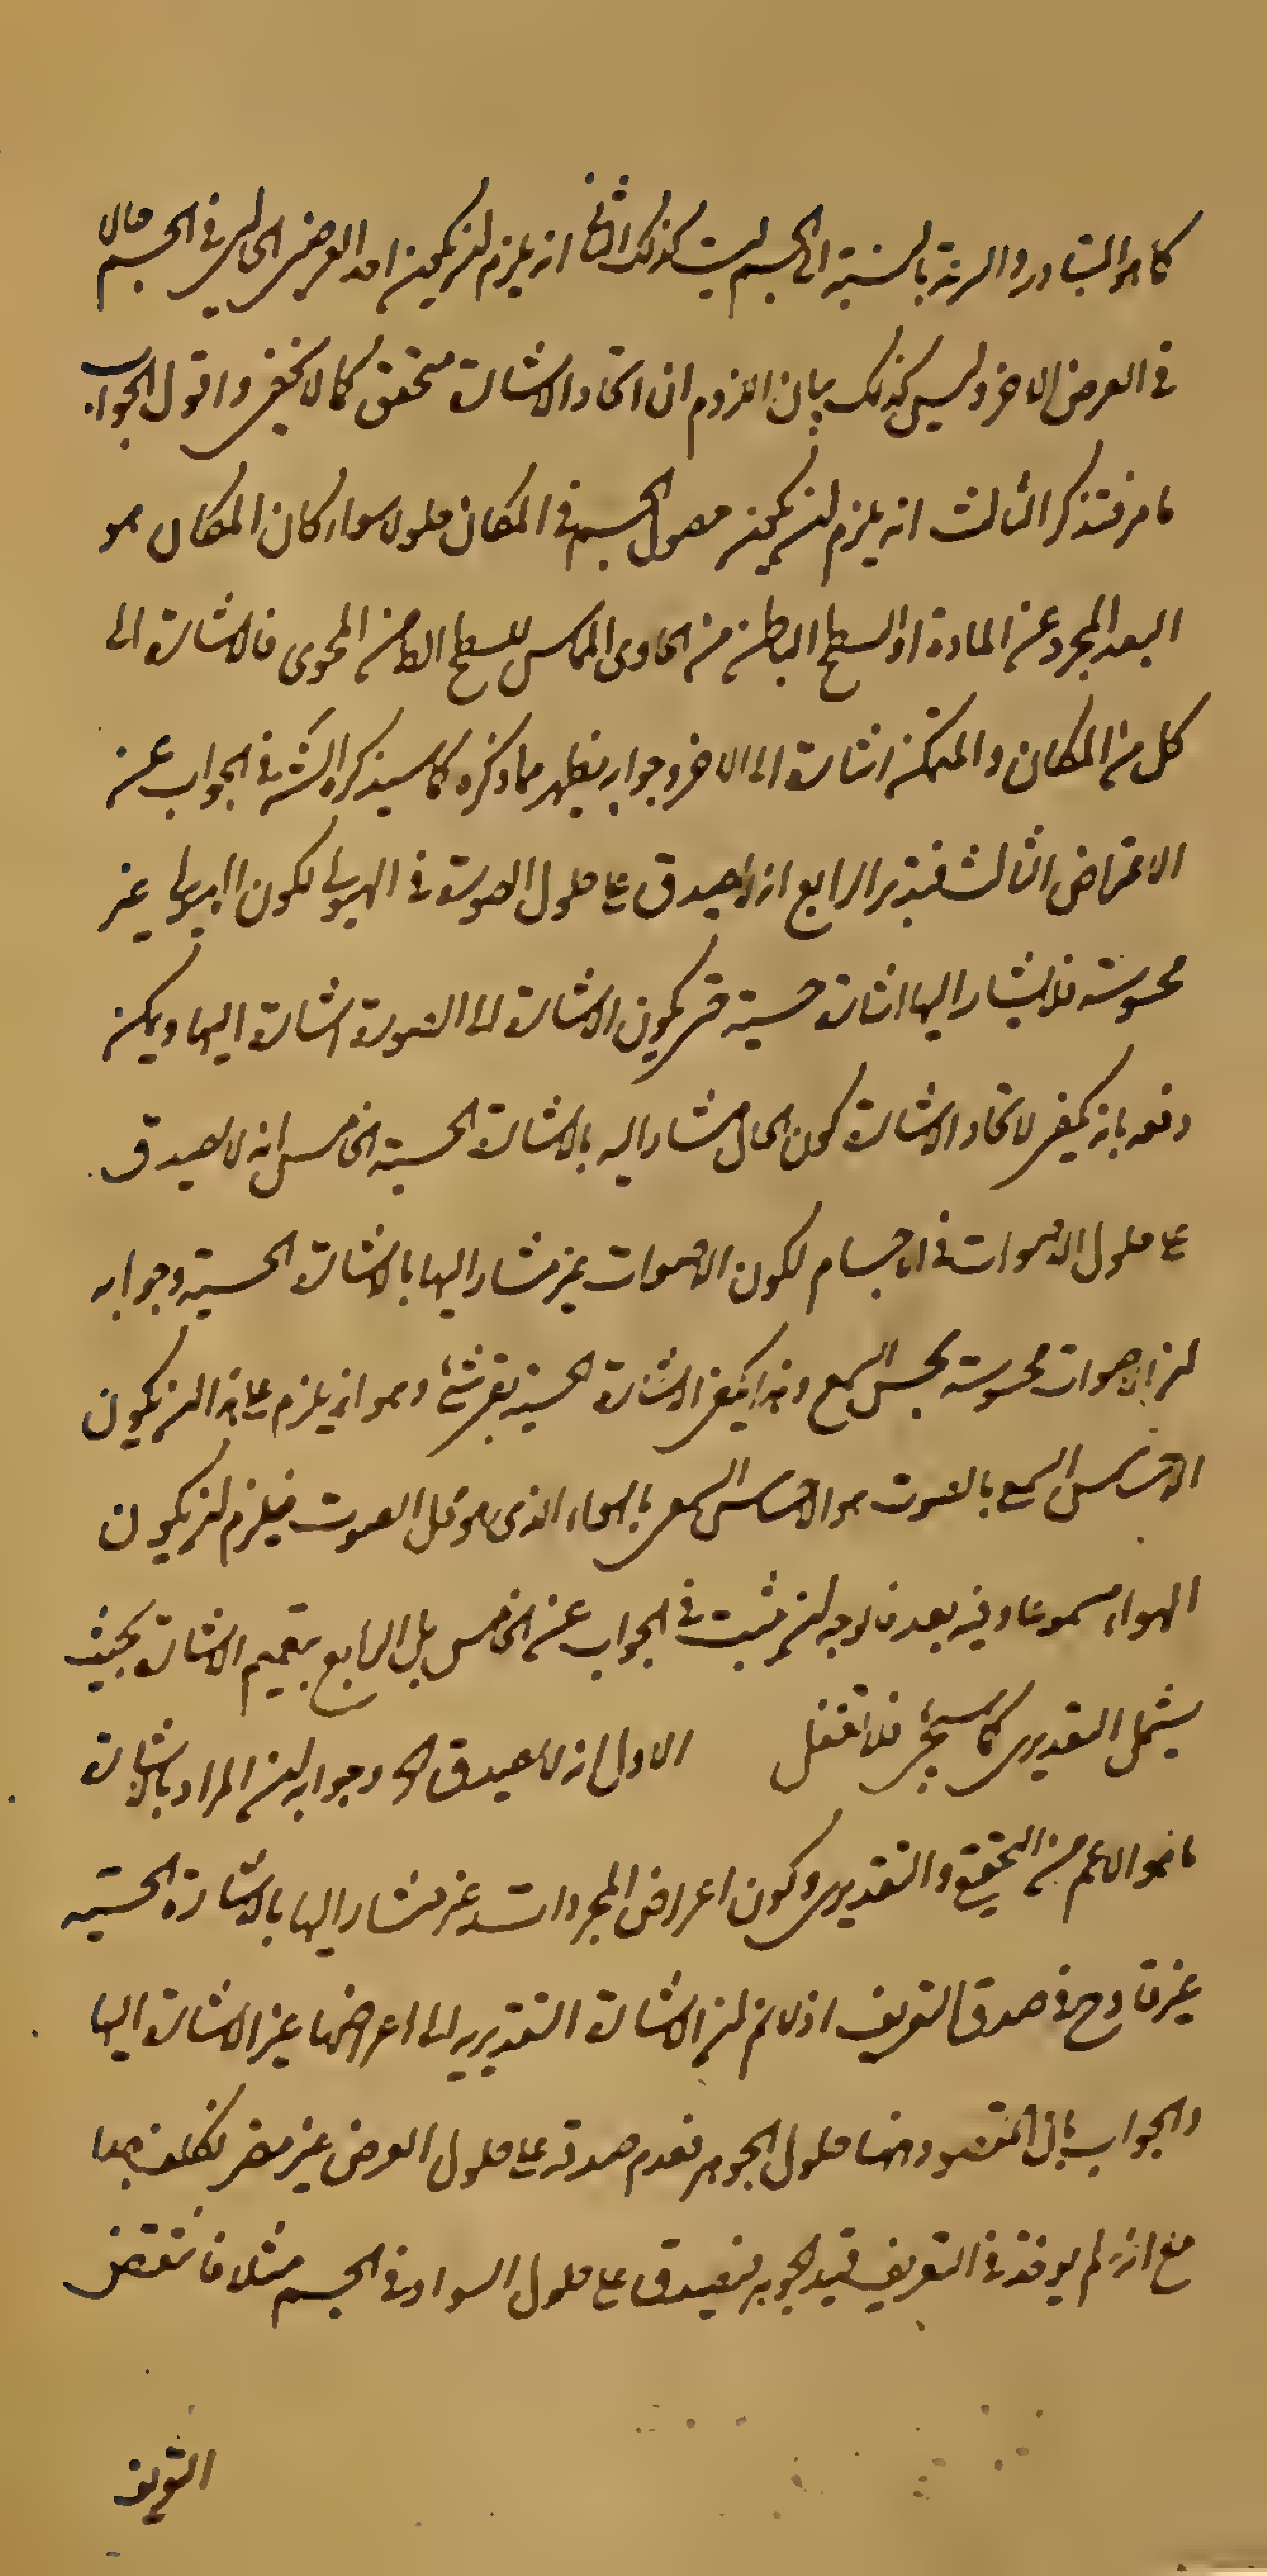 كما هو المتبادر والهيئة بالنسبة الى الجسم ليست كذلك الثاني انه يلزم ان يكون احد العرضين الحالين في الجسم حالا
في العرض الاخر وليس كذلك بيان اللزوم ان اتحاد الاشارة متحقق كما لا يخفى واقول الجواب
ما مر فتذكر الثالث انه يلزم ان يكون حصول الجسم في المكان حلولا سواء كان المكان هو
البعد المجرد عن المادة او السطح الباطن من الحاوى المماس للسطح الظاهر من المحوى فالاشارة الى
كل من المكان والمتمكن اشارة الى الاخر وجوابه يظهر مما ذكره كما سيذكره الش في الجواب عن
الاعتراض الثالث فتدبر الرابع انه لا يصدق على حلول الصورة في الهيولى لكون الهيولى غير
محسوسة فلا يشار اليها اشارة حسية حتى يكون الاشارة الى الصورة اشارة اليها ويمكن
دفعه بانه يكفى لاتحاد الاشارة كون الحال مشارا اليه بالاشارة الحسية الخامس انه لا يصدق
على حلول الاصوات في الاجسام لكون الاصوات غير مشار اليها بالاشارة الحسية وجوابه
ان الاصوات محسوسة بحس السمع وهذا يكفى الاشارة الحسية بقى شئ وهو انه يلزم على هذا ان يكون
الاحساس السمع بالصوت هو الاحساس السمعى بالهواء الذى هو محل الصوت فيلزم ان يكون
الهواء مسموعا وفيه بعد فالوجه ان يثبت في الجواب عن الخامس بل الرابع بتعميم الاشارة بحيث
يشمل التقديرى كما سيجئ فلا تغفل الاول انه لا يصدق الخ وجوابه ان المراد بالاشارة
ما هو الاعم من التحقيقى والتقديرى وكون اعراض المجردات غير مشار اليها بالاشارة الحسية
غير قادح في صدق التعريف اذ لا نم ان الاشارة التقديريه الى اعراضها غير الاشارة اليها
والجواب بان المقصود ههنا حلول الجوهر فعدم صدقه على حلول العرض غير مضر تكلف جدا
مع انه لم يوخذ في التعريف قيد الجوهر فيصدق على حلول السواد في الجسم مثلا فانتقض
التعريف